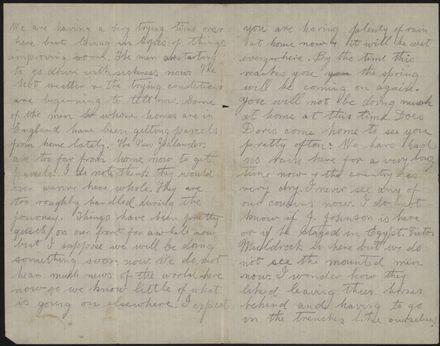 We are having a very trying time over
here but living in hopes of things
improving soon. The men are starting
to go down with sickness now. The
hot weather & the trying conditions
are beginning to tell now. Some
of the men whose homes are in
England have been getting parcels
from home lately. The New Zealanders
are too far from home now to get
parcels. I do not think they would
ever arrive here whole. They are
too roughly handled during the
journey. Things have been pretty
quiet on our front for awhile now
but I suppose we will be doing
something soon now. We do not
hear much news of the world here
now so we know little of what
is going on elsewhere. I expect
you are having plenty of rain
at home now & it will be wet
everywhere. By the time this
reaches you the spring
will be coming on again.
You will not be doing much
at home at this time. Does
Doris come home to see you
pretty often? We have had
no rain here for a very long
time now & the country is
very dry. I never see any of
our cousins now. I do not
know if J. Johnson is here
or if he stayed in Egypt. Victor
Murdoch is here but we do
not see the mounted men
now. I wonder how they
liked leaving their horses
behind and having to go
in the trenches like ourselves.